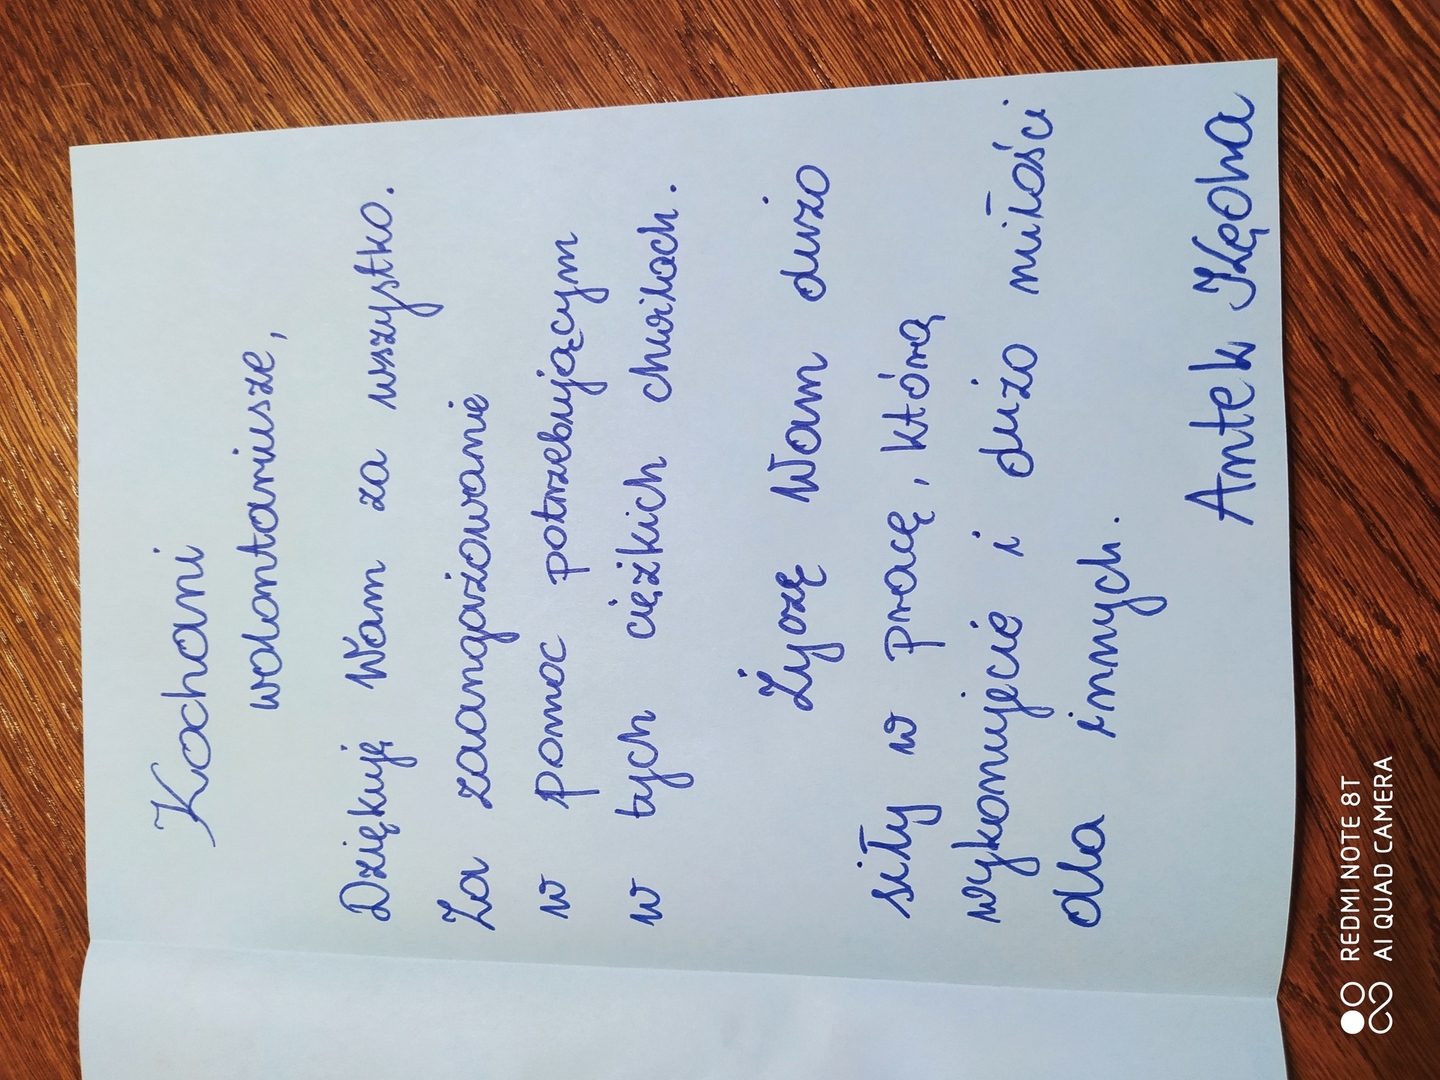 Kochani
wolontariusze,
Dziękuję Wam za wszystko.
Za zaangażowanie
w pomoc potrzebującym
w tych ciężkich chwilach.
Życzę Wam dużo
siły w pracę, którą
wykonujecie i dużo miłości
dla innych.
Antek
REDMI NOTE 8T
AI QUAD CAMERA